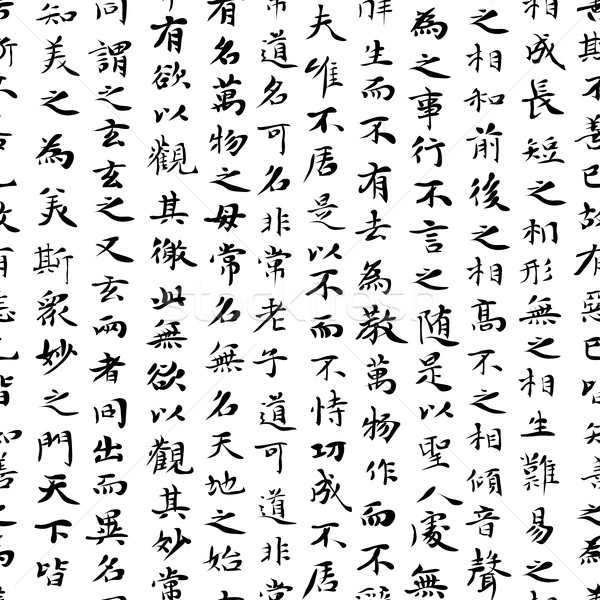 善斯不善已故有惡已皆知善之為
相成長短之相形無之相生難易之
之相和前後之相高不之相傾音聲
為之事行不言之随是以聖人處無
生而不有去為教萬物作而不
夫唯不居是以不而不恃功成不居
常道名可名非常老子道可道非常
有名萬物之母常名無名天地之始
有欲以觀其徼此無欲以觀其妙常
同謂之玄玄之又玄兩者同出而異名
知美之為美斯眾妙之門天下皆